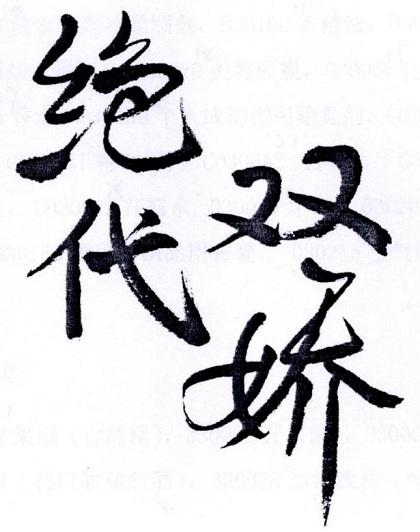 绝代
双娇